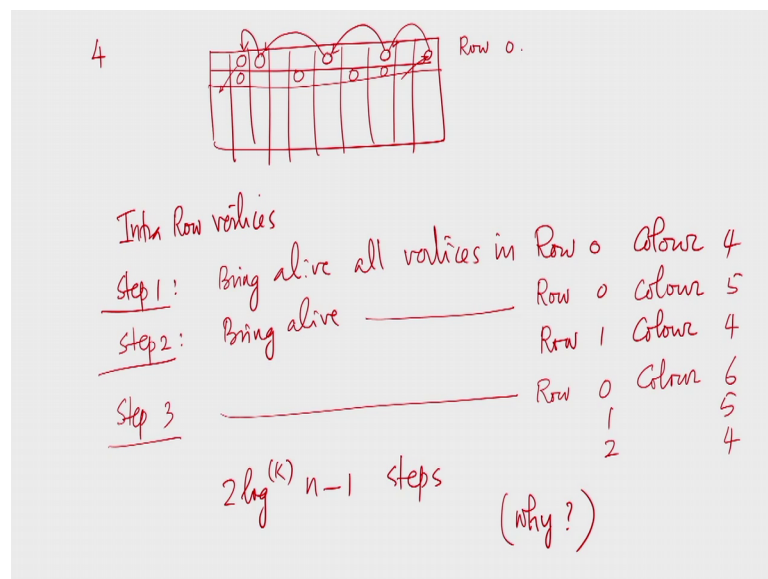 4
Row 0.
Intra Row vertices
Step 1: Bring alive all vertices in Row 0 Colour 4
Step 2: Bring alive Row 0 Colour 5
Row 1 Colour 4
Step 3 Row 0 Colour 6
1 5
2 4
2 log^(K) n-1 steps
(why?)